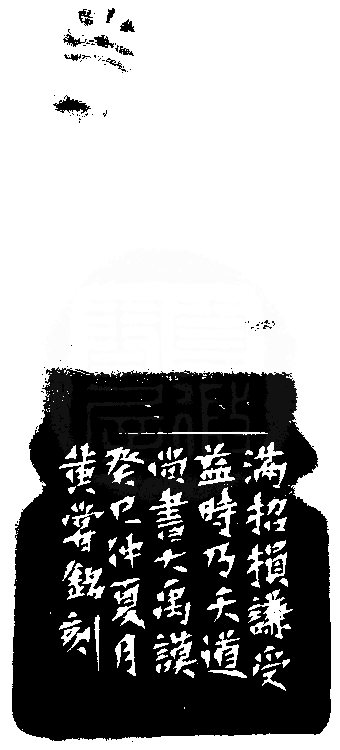 滿招損謙受
益時乃天道
尚書大禹謨
癸巳仲夏月
黃嘗銘刻